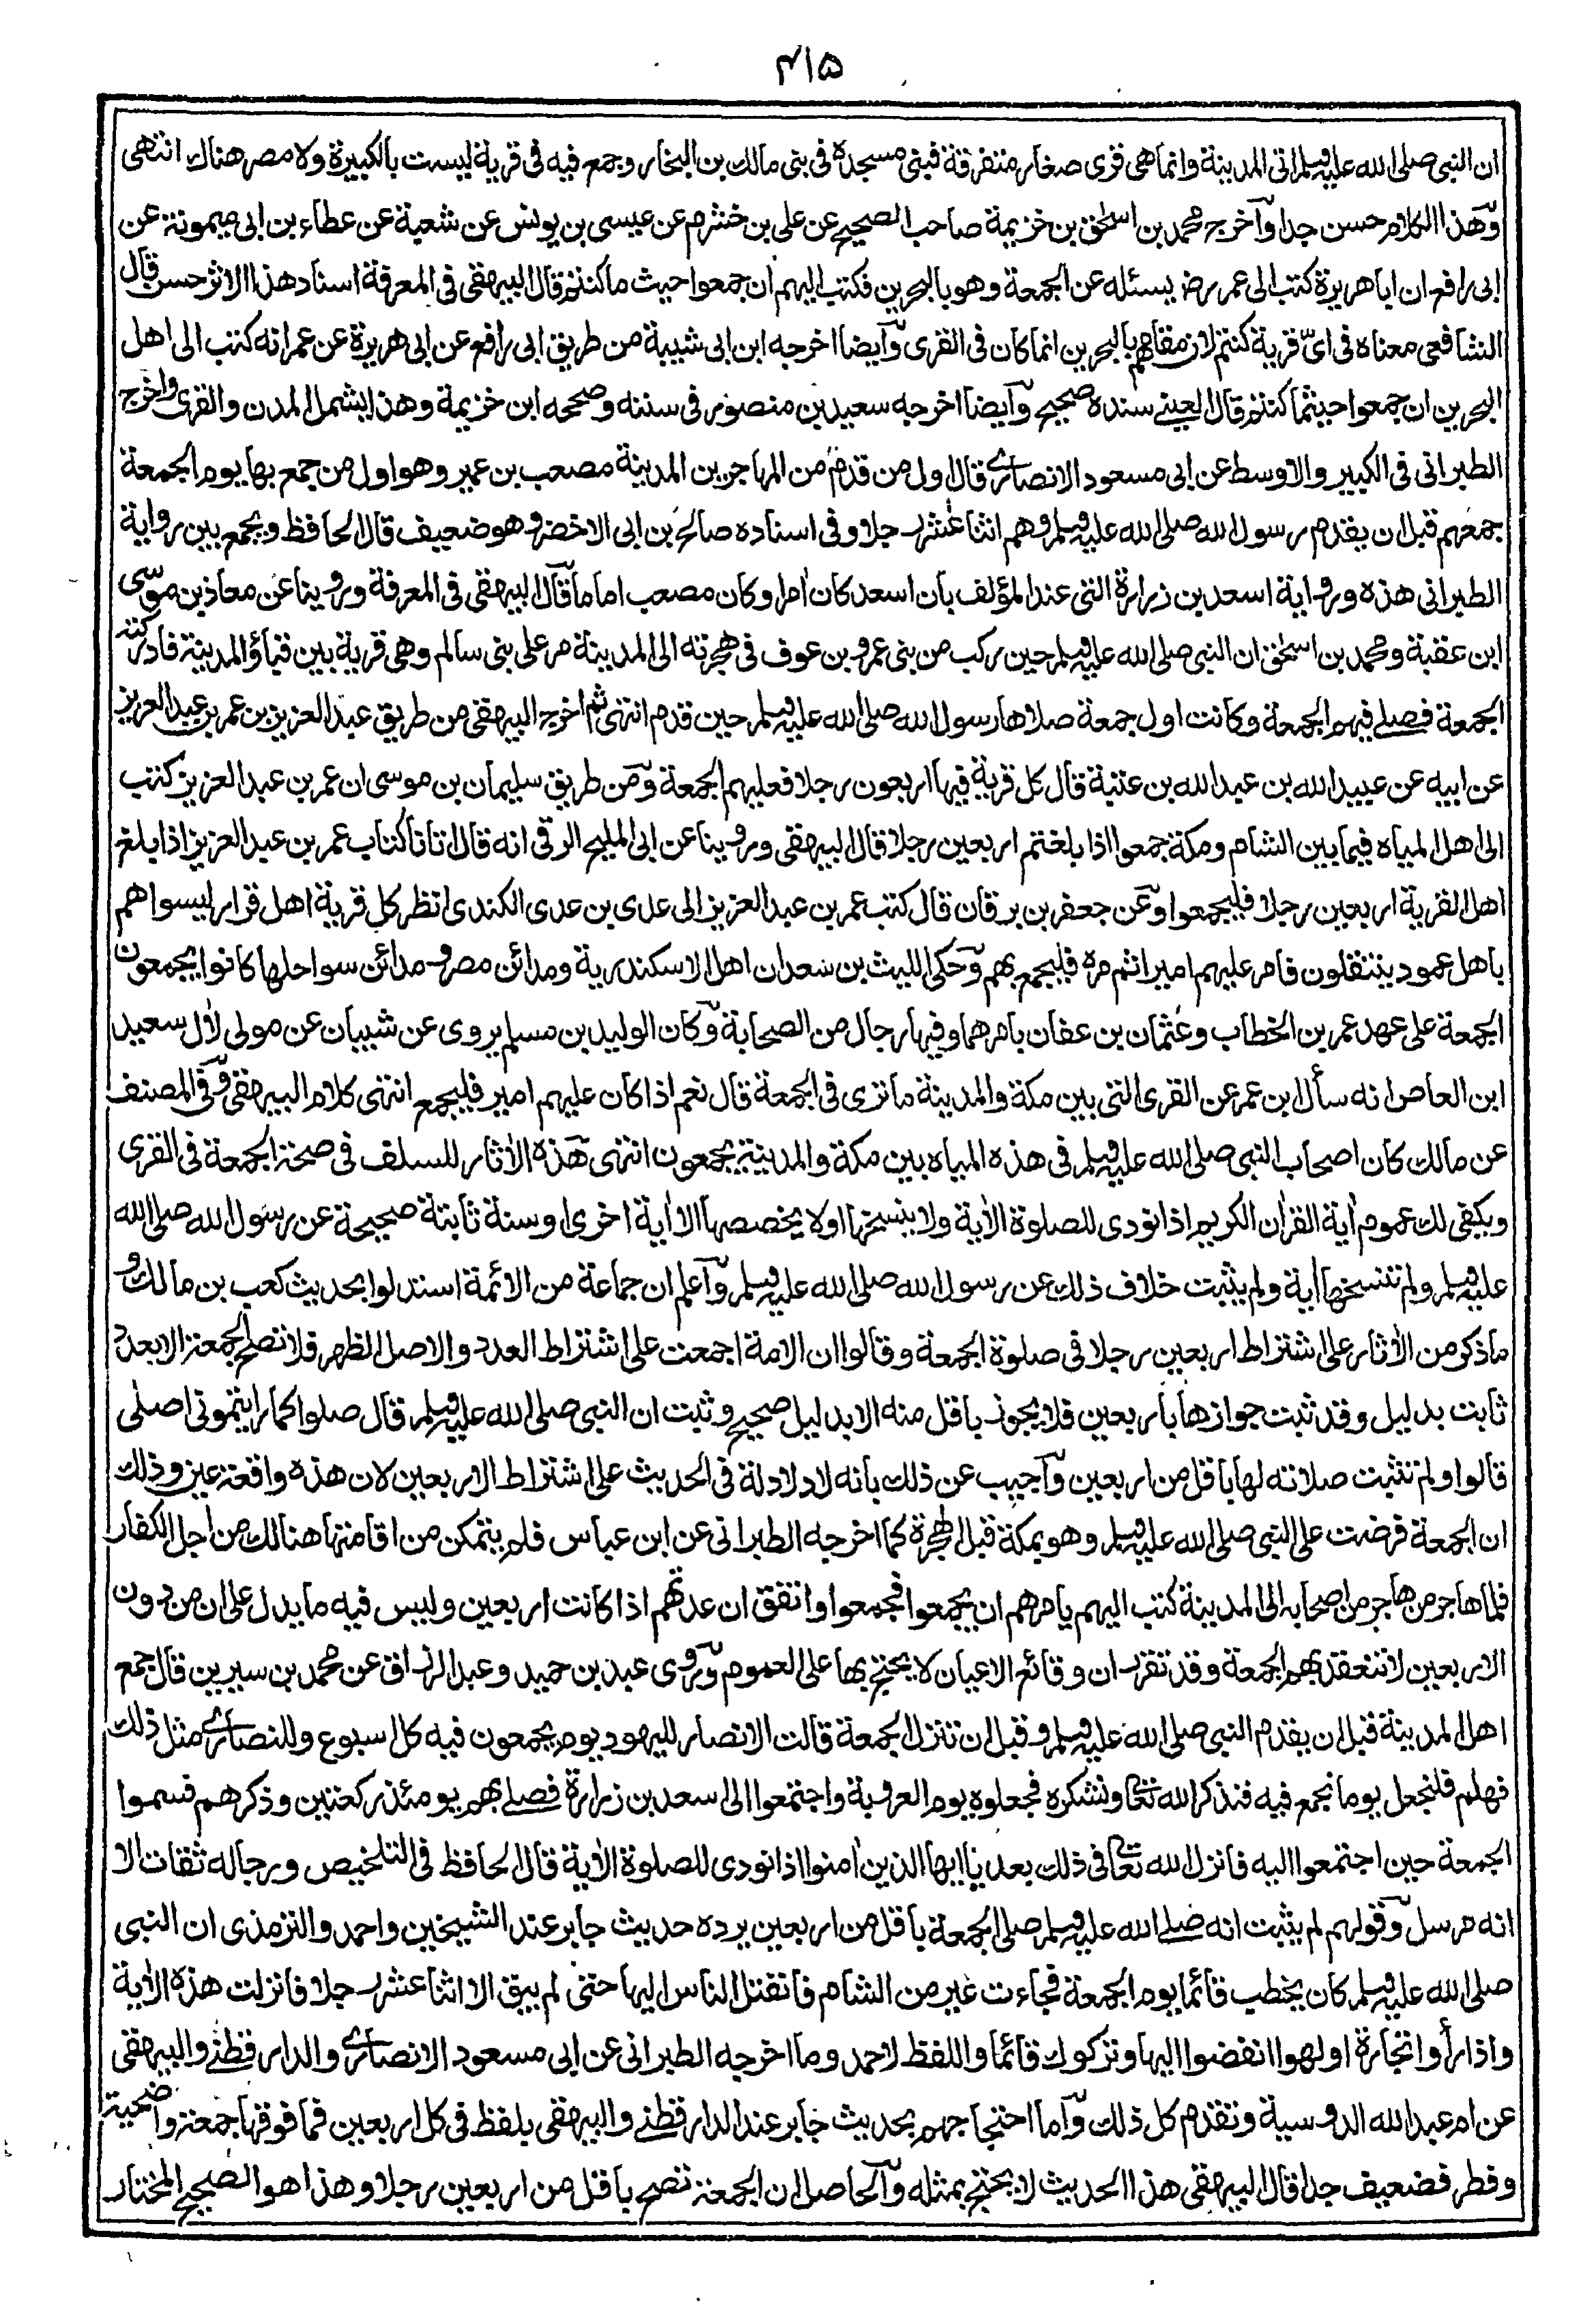 ۴۱۵
ان النبى صلى الله عليه وسلم اتى المدينة وانما هى قرى صغار متفرقة فبنى مسجده فى بنى مالك بن النجار وجمع فيه فى قرية ليست بالكبيرة ولا مصر هناك انتهى
وهذا الكلام حسن جدا وآخرج محمد بن اسحٰق بن خزيمة صاحب الصحيح عن على بن خشرم عن عيسى بن يونس عن شعبة عن عطاء بن ابى ميمونة عن
ابى رافع ان ابا هريرة كتب الى عمر رض يسئله عن الجمعة وهو بالبحرين فكتب اليهم ان جمعوا حيث ما كنتم قال البيهقى فى المعرفة اسناد هذا الاثر حسن قال
الشافعى معناه فى اىّ قرية كنتم لان مقامهم بالبحرين انما كان فى القرى وآيضا اخرجه ابن ابى شيبة من طريق ابى رافع عن ابى هريرة عن عمر انه كتب الى اهل
البحرين ان جمعوا حيثما كنتم قال العينے سنده صحيح وآيضا اخرجه سعيد بن منصور فى سننه وصححه ابن خزيمة وهذا يشمل المدن والقرى وآخرج
الطبرانى فى الكبير والاوسط عن ابى مسعود الانصارے قال اول من قدم من المهاجرين المدينة مصعب بن عمير وهو اول من جمع بها يوم الجمعة
جمعهم قبل ان يقدم رسول الله صلى الله عليه وسلم وهم اثنا عشر رجلا وفى اسناده صالح بن ابى الاخضر وهو ضعيف قال الحافظ ويجمع بين رواية
الطبرانى هذه ورواية اسعد بن زرارة التى عند المؤلف بان اسعد كان اٰمرا وكان مصعب اماما قال البيهقى فى المعرفة وروينا عن معاذ بن موسى
ابن عقبة ومحمد بن اسحٰق ان النبى صلى الله عليه وسلم حين ركب من بنى عمرو بن عوف فى هجرته الى المدينة مر على بنى سالم وهى قرية بين قباؤ المدينة فادركته
الجمعة فصلے فيهم الجمعة وكانت اول جمعة صلاها رسول الله صلى الله عليه وسلم حين قدم انتهى ثم اخرج البيهقى من طريق عبد العزيز بن عمر بن عبد العزيز
عن ابيه عن عبيد الله بن عبد الله بن عتبة قال كل قرية فيها اربعون رجلا فعليهم الجمعة ومن طريق سليمان بن موسى ان عمر بن عبد العزيز كتب
الى اهل المياه فيما بين الشام ومكة جمعوا اذا بلغتم اربعين رجلا قال البيهقى وروينا عن ابى المليح الرقى انه قال اتانا كتاب عمر بن عبد العزيز اذا بلغ
اهل القرية اربعين رجلا فليجمعوا وعن جعفر بن برقان قال كتب عمر بن عبد العزيز الى عدى بن عدى الكندى انظر كل قرية اهل قرار ليسوا هم
باهل عمود ينتقلون فامر عليهم اميرا ثم مره فليجمع بهم وحكى الليث بن سعد ان اهل الاسكندرية ومدائن مصر ومدائن سواحلها كانوا يجمعون
الجمعة على عهد عمر بن الخطاب وعثمان بن عفان بامرهما وفيها رجال من الصحابة وكان الوليد بن مسلم يروى عن شيبان عن مولى لاٰل سعيد
ابن العاص انه سأل ابن عمر عن القرى التى بين مكة والمدينة ما ترى فى الجمعة قال نعم اذا كان عليهم امير فليجمع انتهى كلام البيهقى وفى المصنف
عن مالك كان اصحاب النبى صلى الله عليه وسلم فى هذه المياه بين مكة والمدينة يجمعون انتهى هذه الاٰثار للسلف فى صحة الجمعة فى القرى
ويكفى لك عموم اٰية القراٰن الكريم اذا نودى للصلوة الاٰية ولا ينسخها اولا يخصصها الا اٰية اخرى او سنة ثابتة صحيحة عن رسول الله صلى الله
عليه وسلم ولم تنسخها اٰية ولم يثبت خلاف ذلك عن رسول الله صلى الله عليه وسلم وآعلم ان جماعة من الائمة استدلوا بحديث كعب بن مالك و
ما ذكر من الاٰثار على اشتراط اربعين رجلا فى صلوة الجمعة وقالوا ان الامة اجمعت على اشتراط العدد والاصل الظهر فلا تصح الجمعة الا بعدد
ثابت بدليل وقد ثبت جوازها باربعين فلا يجوز باقل منه الا بدليل صحيح وثبت ان النبى صلى الله عليه وسلم قال صلوا كما رايتمونى اصلى
قالوا ولم تثبت صلاته لها باقل من اربعين وآجيب عن ذلك بانه لا دلالة فى الحديث على اشتراط الاربعين لان هذه واقعة عين وذلك
ان الجمعة فرضت على النبى صلى الله عليه وسلم وهو بمكة قبل الهجرة كما اخرجه الطبرانى عن ابن عباس فلم يتمكن من اقامتها هنالك من اجل الكفار
فلما هاجر من هاجر من اصحابه الى المدينة كتب اليهم يامرهم ان يجمعوا فجمعوا واتفق ان عدتهم اذا كانت اربعين وليس فيه ما يدل على ان من دون
الاربعين لا تنعقد بهم الجمعة وقد تقرر ان وقائع الاعيان لا يحتج بها على العموم وروى عبد بن حميد وعبد الرزاق عن محمد بن سيرين قال جمع
اهل المدينة قبل ان يقدم النبى صلى الله عليه وسلم وقبل ان تنزل الجمعة قالت الانصار لليهود يوم يجمعون فيه كل اسبوع وللنصارے مثل ذلك
فهلم فلنجعل يوما نجمع فيه فنذكر الله تعالى ونشكره فجعلوه يوم العروبة واجتمعوا الى اسعد بن زرارة فصلے بهم يومئذ ركعتين وذكرهم فسموا
الجمعة حين اجتمعوا اليه فانزل الله تعالى فى ذلك بعد يا ايها الذين اٰمنوا اذا نودى للصلوة الاٰية قال الحافظ فى التلخيص ورجاله ثقات الا
انه مرسل وقولهم لم يثبت انه صلے الله عليه وسلم صلى الجمعة باقل من اربعين يرده حديث جابر عند الشيخين واحمد والترمذى ان النبى
صلى الله عليه وسلم كان يخطب قائما يوم الجمعة فجاءت عير من الشام فانفتل الناس اليها حتى لم يبق الا اثنا عشر رجلا فانزلت هذه الاٰية
واذا رأوا تجارة او لهوا انفضوا اليها وتركوك قائما واللفظ لاحمد وما اخرجه الطبرانى عن ابى مسعود الانصارے والدارقطنے والبيهقى
عن ام عبد الله الدوسية وتقدم كل ذلك وآما احتجاجهم بحديث جابر عند الدارقطنے والبيهقى بلفظ فى كل اربعين فما فوقها جمعة واضحية
وفطر فضعيف جدا قال البيهقى هذا الحديث لا يحتج بمثله وآلحاصل ان الجمعة تصح باقل من اربعين رجلا وهذا هو الصحيح المختار